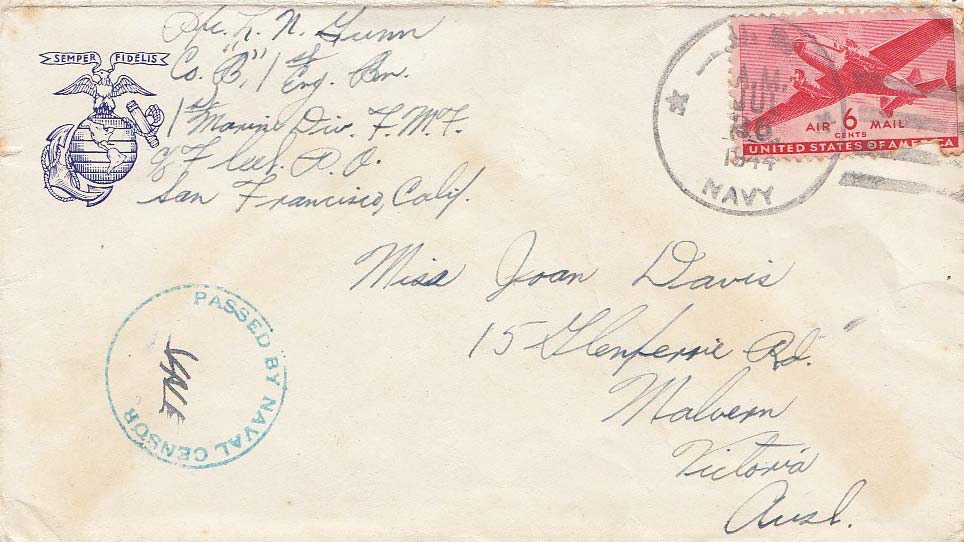 SEMPER FIDELIS
Pfc. L. N. Gunn
Co. "B", 1st Eng. Bn.
1st Marine Div. F.M.F.
℅ Fleet P.O.
San Francisco, Calif.
U.S.
A.M.
JUL
30
1944
NAVY
AIR 6 MAIL
CENTS
UNITED STATES OF AMERICA
Miss Joan Davis
15 Glenferrie Rd.
Malvern
Victoria
Ausl.
PASSED BY NAVAL CENSOR